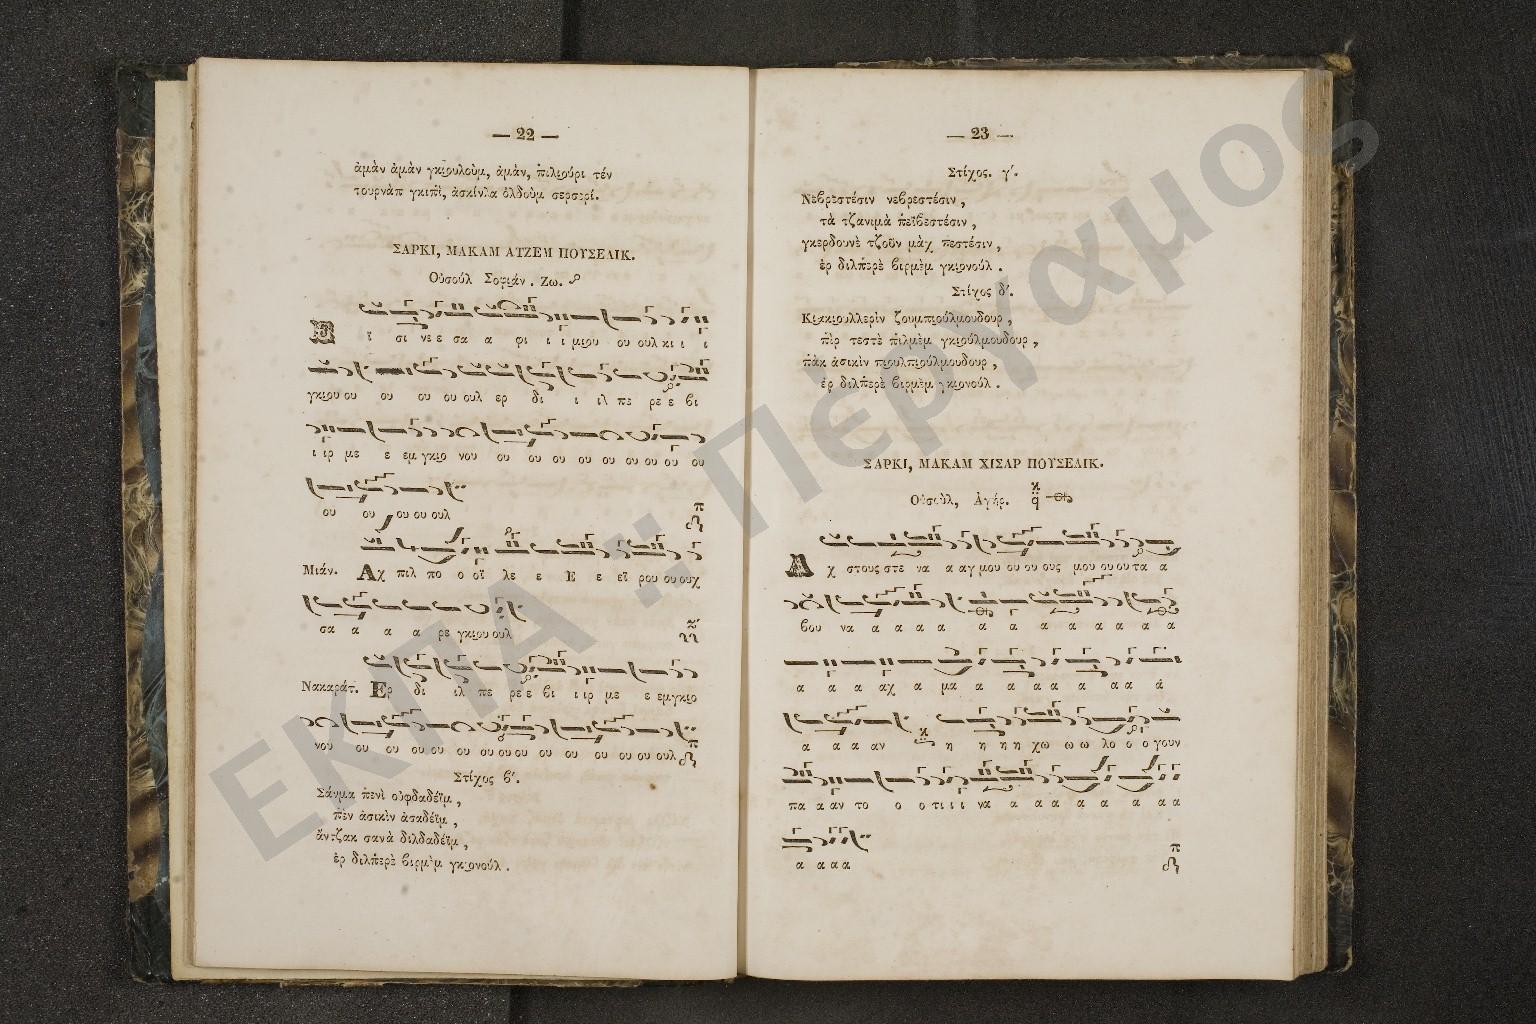 — 22 —
ἀμὰν ἀμὰν γκιουλοὺμ, ἀμὰν, πιλιούρι τέν
τουρνὰπ γκιπὶ, ἀσκίνλα ὀλδοὺμ σερσερί.
ΣΑΡΚΙ, ΜΑΚΑΜ ΑΤΖΕΜ ΠΟΥΣΕΛΙΚ.
Οὐσοὺλ Σοφιάν. Ζω.
Ε ϊ σι νε ε σα α φι ι ι μιου ου ουλ κι ι ι
γκιου ου ου ου ου ουλ ερ δι ι ιλ πε ρε ε βι
ι ιρ με ε εμ γκιο νου ου ου ου ου ου ου ου ου ου
ου ου ου ου ουλ
π
Μιάν. Αχ πιλ πο ο οϊ λε ε Ε ε εϊ ρου ου ουχ
σα α α α ρε γκιου ουλ
Νακαράτ. Ερ δι ιλ πε ρε ε βι ι ιρ με ε εμγκιο
νου ου ου ου ου ου ου ου ου ου ου ου ου ου ουλ
π
Στίχος β΄.
Σάνμα πενὶ οὐφδαδέϊμ,
πὲν ἀσικὶν ἀσαδέϊμ,
ἄντζακ σανὰ διλδαδέϊμ,
ἐρ διλπερὲ βιρμὲμ γκιονούλ.
— 23 —
Στίχος. γ΄.
Νεβρεστέσιν νεβρεστέσιν,
τὰ τζανιμὰ πεϊβεστέσιν,
γκερδουνὲ τζοῦν μὰχ πεστέσιν,
ἐρ διλπερὲ βιρμὲμ γκιονούλ.
Στίχος δ΄.
Κιακιουλλερὶν ζουμπιούλμουδουρ,
πὶρ τεστὲ πιλμὲμ γκιούλμουδουρ,
πὰκ ἀσικὶν πιουλπιούλμουδουρ,
ἐρ διλπερὲ βιρμὲμ γκιονούλ.
ΣΑΡΚΙ, ΜΑΚΑΜ ΧΙΣΑΡ ΠΟΥΣΕΛΙΚ.
Οὐσοὺλ, Ἀγήρ. κ
Α χ στους στε να α αγ μου ου ου ους μου ου ου τα α
βου να α α α α α α α α α α α α
α α α αχ α μα α α α α α α α ἀ
α α α αν κ η η η η χω ω ω λο ο ο γουν
πα α αν το ο ο τι ι ι να α α α α α α α α
α α α α
π
ΕΚΠΑ :: Πέργαμος